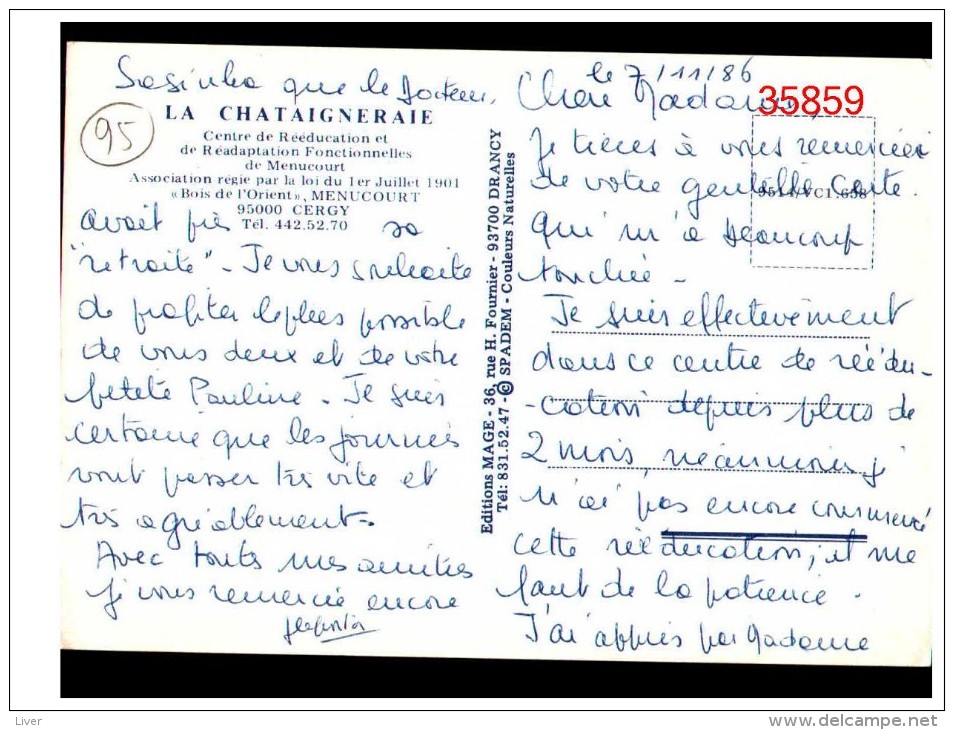 le 7/11/86
Chère Madame,
35859
Je tiens à vous remercier
de votre gentille carte.
951 VC1.658
qui m'a beaucoup
touchée -
Je suis effectivement
dans ce centre de réédu-
-cation depuis plus de
2 mois, néanmoins j'
n'ai pas encore commencé
cette rééducation, il me
faut de la patience.
J'ai appris par Madame
que le docteur,
avait pris sa
"retraite" - Je vous souhaite
de profiter le plus possible
de vous deux et de votre
petite Pauline. Je suis
certaine que les journées
vont passer très vite et
très agréablement -
Avec toutes mes amitiés
je vous remercie encore
95
LA CHATAIGNERAIE
Centre de Rééducation et
de Réadaptation Fonctionnelles
de Menucourt
Association régie par la loi du 1er Juillet 1901
«Bois de l'Orient», MENUCOURT
95000 CERGY
Tél. 442.52.70
Editions MAGE - 36, rue H. Fournier - 93700 DRANCY
Tél: 831.52.47 - © SPADEM - Couleurs Naturelles
Liver
delcampe.net